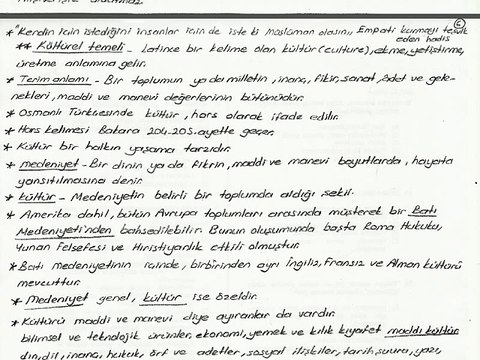 * "Kendin için istediğini insanlar için de iste ki müslüman olasın, Empati kurmayı teşvik eden hadis
** Kültürel temeli - Latince bir kelime olan kültür (culture), ekme, yetiştirme,
üretme anlamına gelir.
* Terim anlamı - Bir toplumun ya da milletin, inanç, fikir, sanat, adet ve gele-
nekleri, maddi ve manevi değerlerinin bütünüdür.
* Osmanlı Türkçesinde kültür, hars olarak ifade edilir.
* Hars kelimesi Bakara 204-205. ayette geçer.
* Kültür bir halkın yaşama tarzıdır.
* Medeniyet - Bir dinin ya da fikrin, maddi ve manevi boyutlarda, hayata
yansıtılmasına denir.
* Kültür - Medeniyetin belirli bir toplumda aldığı şekil.
* Amerika dahil, bütün Avrupa toplumları arasında müşterek bir Batı
Medeniyeti'nden bahsedilebilir. Bunun oluşumunda başta Roma Hukuku,
Yunan Felsefesi ve Hıristiyanlık etkili olmuştur.
* Batı medeniyetinin içinde, birbirinden ayrı İngiliz, Fransız ve Alman kültürü
mevcuttur.
* Medeniyet genel, kültür ise özeldir.
* Kültürü maddi ve manevi diye ayıranlar da vardır.
bilimsel ve teknolojik ürünler, ekonomi, yemek ve kılık kıyafet maddi kültür
din, dil, inanç, hukuk, örf ve adetler, sosyal ilişkiler, tarih, şuuru, yazı,